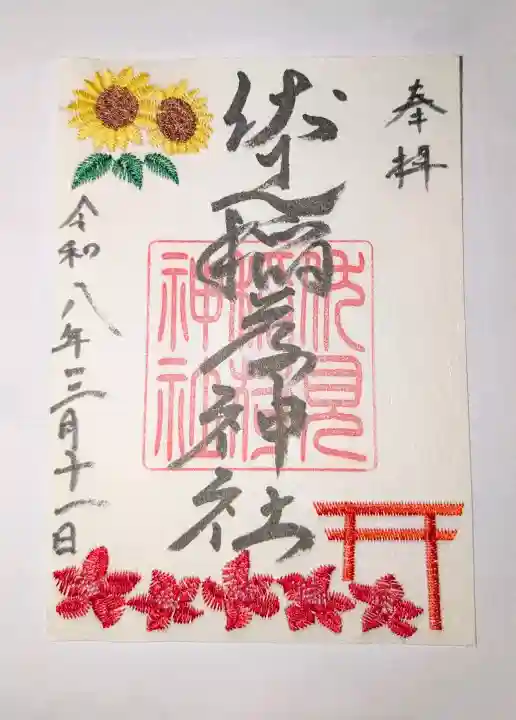 奉拝
伏見稲荷神社
伏見
稲荷
神社
令和八年三月十一日